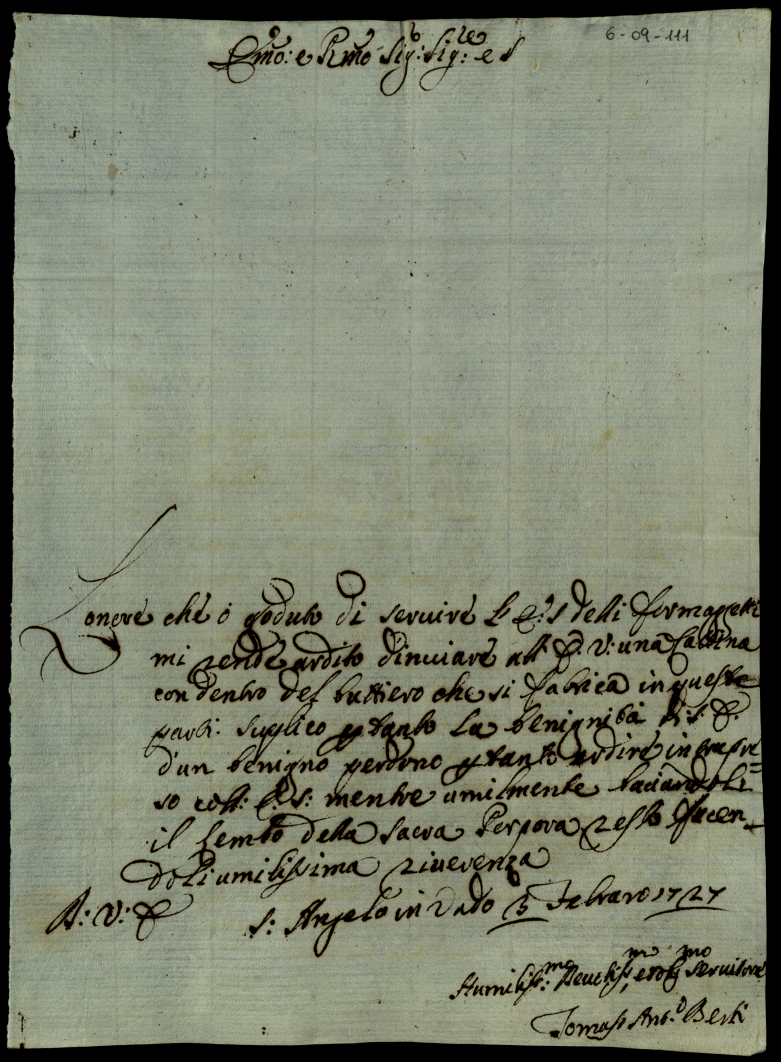 6-09-111
Emo: e Rmo Sig:r Sig:re e S
Lonore che ò goduto di seruire li E:S delli formaggetti
mi rende ardito dinuiare all E. V: una Casina
con dentro del buttiero che si fabrica in queste
parti. suplico p tanto la benignità di S. E.
d'un benigno perdono p tanto ardire in
so coll: E: S: mentre umilmente baciandoli
il lembo della Sacra Porpora resto facen_
doli umilissima riuerenza
A: V: E
S: Angelo in Vado 5 Febraro 1727
Humiliss:mo Deuotiss:mo et oblig:mo Seruitore
Tomaso Ant:o Berti